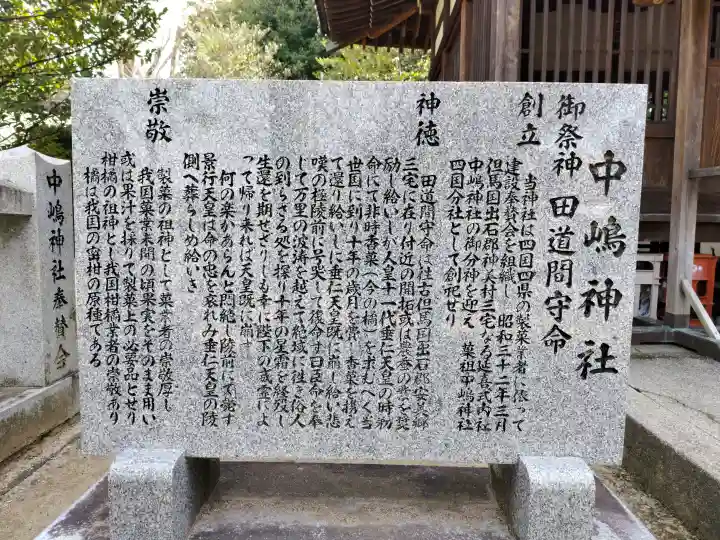 中嶋神社
御祭神 田道間守命
創立
当神社は四国四県の製菓業者に依って
建設奉賛会を組織し 昭和三十二年三月
但馬国出石郡神美村三宅なる延喜式内社
中嶋神社の御分神を迎え 菓祖中嶋神社
四国分社として創祀せり
神徳
田道間守命は往古但馬国出石郡安美郷
三宅に在り付近の開拓或は農蚕の業を奨
励し給いしが人皇十一代垂仁天皇の時勅
命にて非時香菓(今の橘)を求むべく当
世国に到り十年の歳月を費し香菓を携え
て還り給いしに垂仁天皇既に崩し給い悲
嘆の極陵前に号哭して復命す曰臣命を奉
して万里の波涛を越えて絶域に往き俗人
の到らざる処を探り十年の星霜を経残し
生還を期せざりしも幸に陛下の威霊によ
って帰り来れば天皇既に崩す
何の楽かあらんと悶絶し陵前にて斃す
景行天皇は命の忠を哀れみ垂仁天皇の陵
側へ葬らしめ給いき
崇敬
製菓の祖神として菓業者の崇敬厚し
我国菓業未開の頃果実をそのまま用い
或は果汁を採りて製菓上の必需品とせり
柑橘の祖神とし我国柑橘業者の崇敬あり
橘は我国の蜜柑の原種である
中嶋神社奉賛会